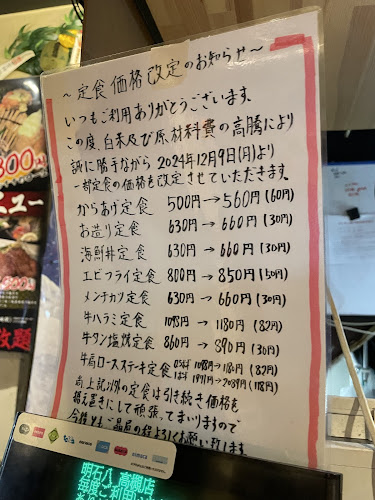 ～定食価格改定のお知らせ～
いつもご利用ありがとうございます。
この度、白米及び原材料費の高騰により
誠に勝手ながら2024年12月9日(月)より
一部定食の価格を改定させていただきます。
からあげ定食 500円→560円(60円)
お造り定食 630円→660円(30円)
海鮮丼定食 630円→660円(30円)
エビフライ定食 800円→850円(50円)
メンチカツ定食 630円→660円(30円)
牛ハラミ定食 1098円→1180円(82円)
牛タン塩焼定食 860円→890円(30円)
牛肩ロースステーキ定食 1098円→1180円(82円)
1921円→2039円(118円)
尚上記以外の定食は引き続き価格を
据え置きにして頑張ってまいりますので
今後ともご愛顧の程よろしくお願い致します
明石八 高槻店
毎度ご利用
ニュー
放題